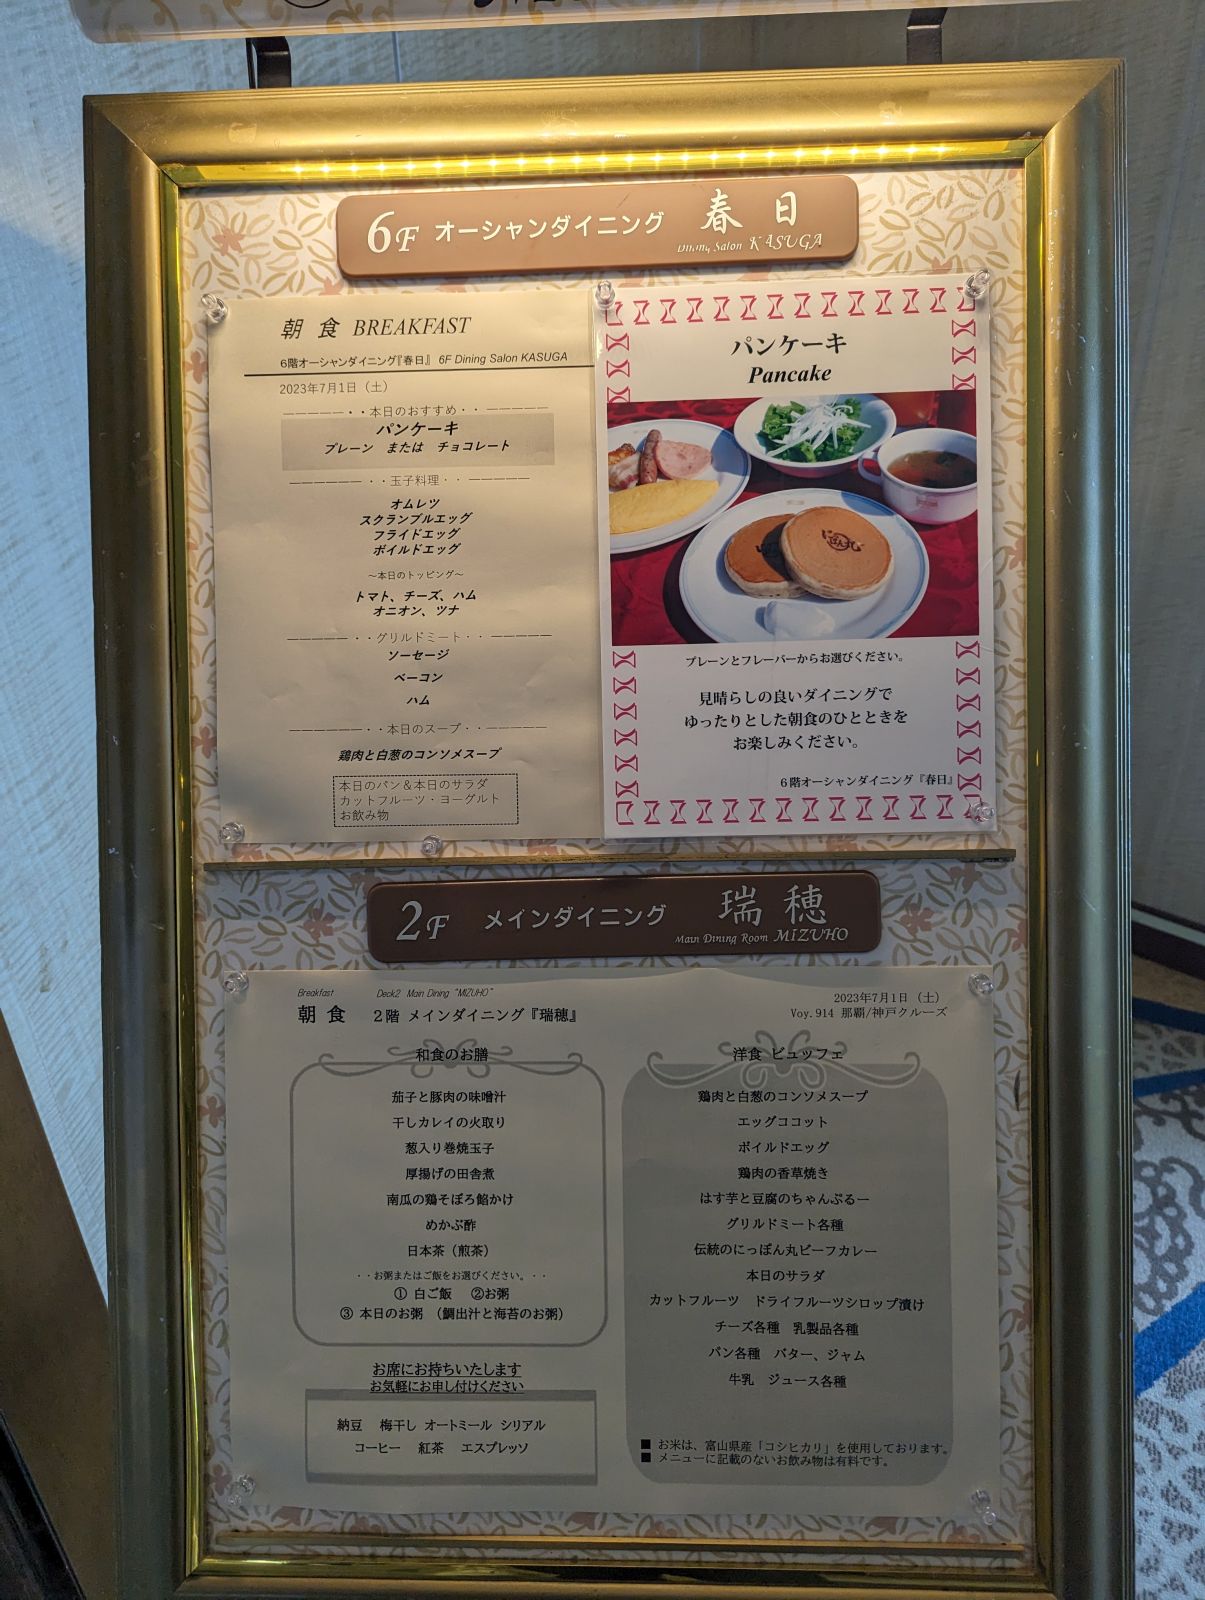 6F オーシャンダイニング 春日
Dining Salon KASUGA
朝食 BREAKFAST
6階オーシャンダイニング『春日』 6F Dining Salon KASUGA
2023年7月1日（土）
――――― ・・本日のおすすめ・・ ―――――
パンケーキ
プレーン または チョコレート
――――― ・・玉子料理・・ ―――――
オムレツ
スクランブルエッグ
フライドエッグ
ボイルドエッグ
～本日のトッピング～
トマト、チーズ、ハム
オニオン、ツナ
――――― ・・グリルドミート・・ ―――――
ソーセージ
ベーコン
ハム
――――― ・・本日のスープ・・ ―――――
鶏肉と白葱のコンソメスープ
本日のパン＆本日のサラダ
カットフルーツ・ヨーグルト
お飲み物
パンケーキ
Pancake
にっぽん丸
プレーンとフレーバーからお選びください。
見晴らしの良いダイニングで
ゆったりとした朝食のひとときを
お楽しみください。
6階オーシャンダイニング『春日』
2F メインダイニング 瑞穂
Main Dining Room MIZUHO
Breakfast Deck2 Main Dining "MIZUHO"
朝食 2階 メインダイニング『瑞穂』
2023年7月1日（土）
Voy.914 那覇/神戸クルーズ
和食のお膳
茄子と豚肉の味噌汁
干しカレイの火取り
葱入り巻焼玉子
厚揚げの田舎煮
南瓜の鶏そぼろ餡かけ
めかぶ酢
日本茶（煎茶）
・・お粥またはご飯をお選びください。・・
① 白ご飯 ②お粥
③ 本日のお粥 （鯛出汁と海苔のお粥）
お席にお持ちいたします
お気軽にお申し付けください
納豆 梅干し オートミール シリアル
コーヒー 紅茶 エスプレッソ
洋食 ビュッフェ
鶏肉と白葱のコンソメスープ
エッグココット
ボイルドエッグ
鶏肉の香草焼き
はす芋と豆腐のちゃんぷるー
グリルドミート各種
伝統のにっぽん丸ビーフカレー
本日のサラダ
カットフルーツ ドライフルーツシロップ漬け
チーズ各種 乳製品各種
パン各種 バター、ジャム
牛乳 ジュース各種
■ お米は、富山県産「コシヒカリ」を使用しております。
■ メニューに記載のないお飲み物は有料です。